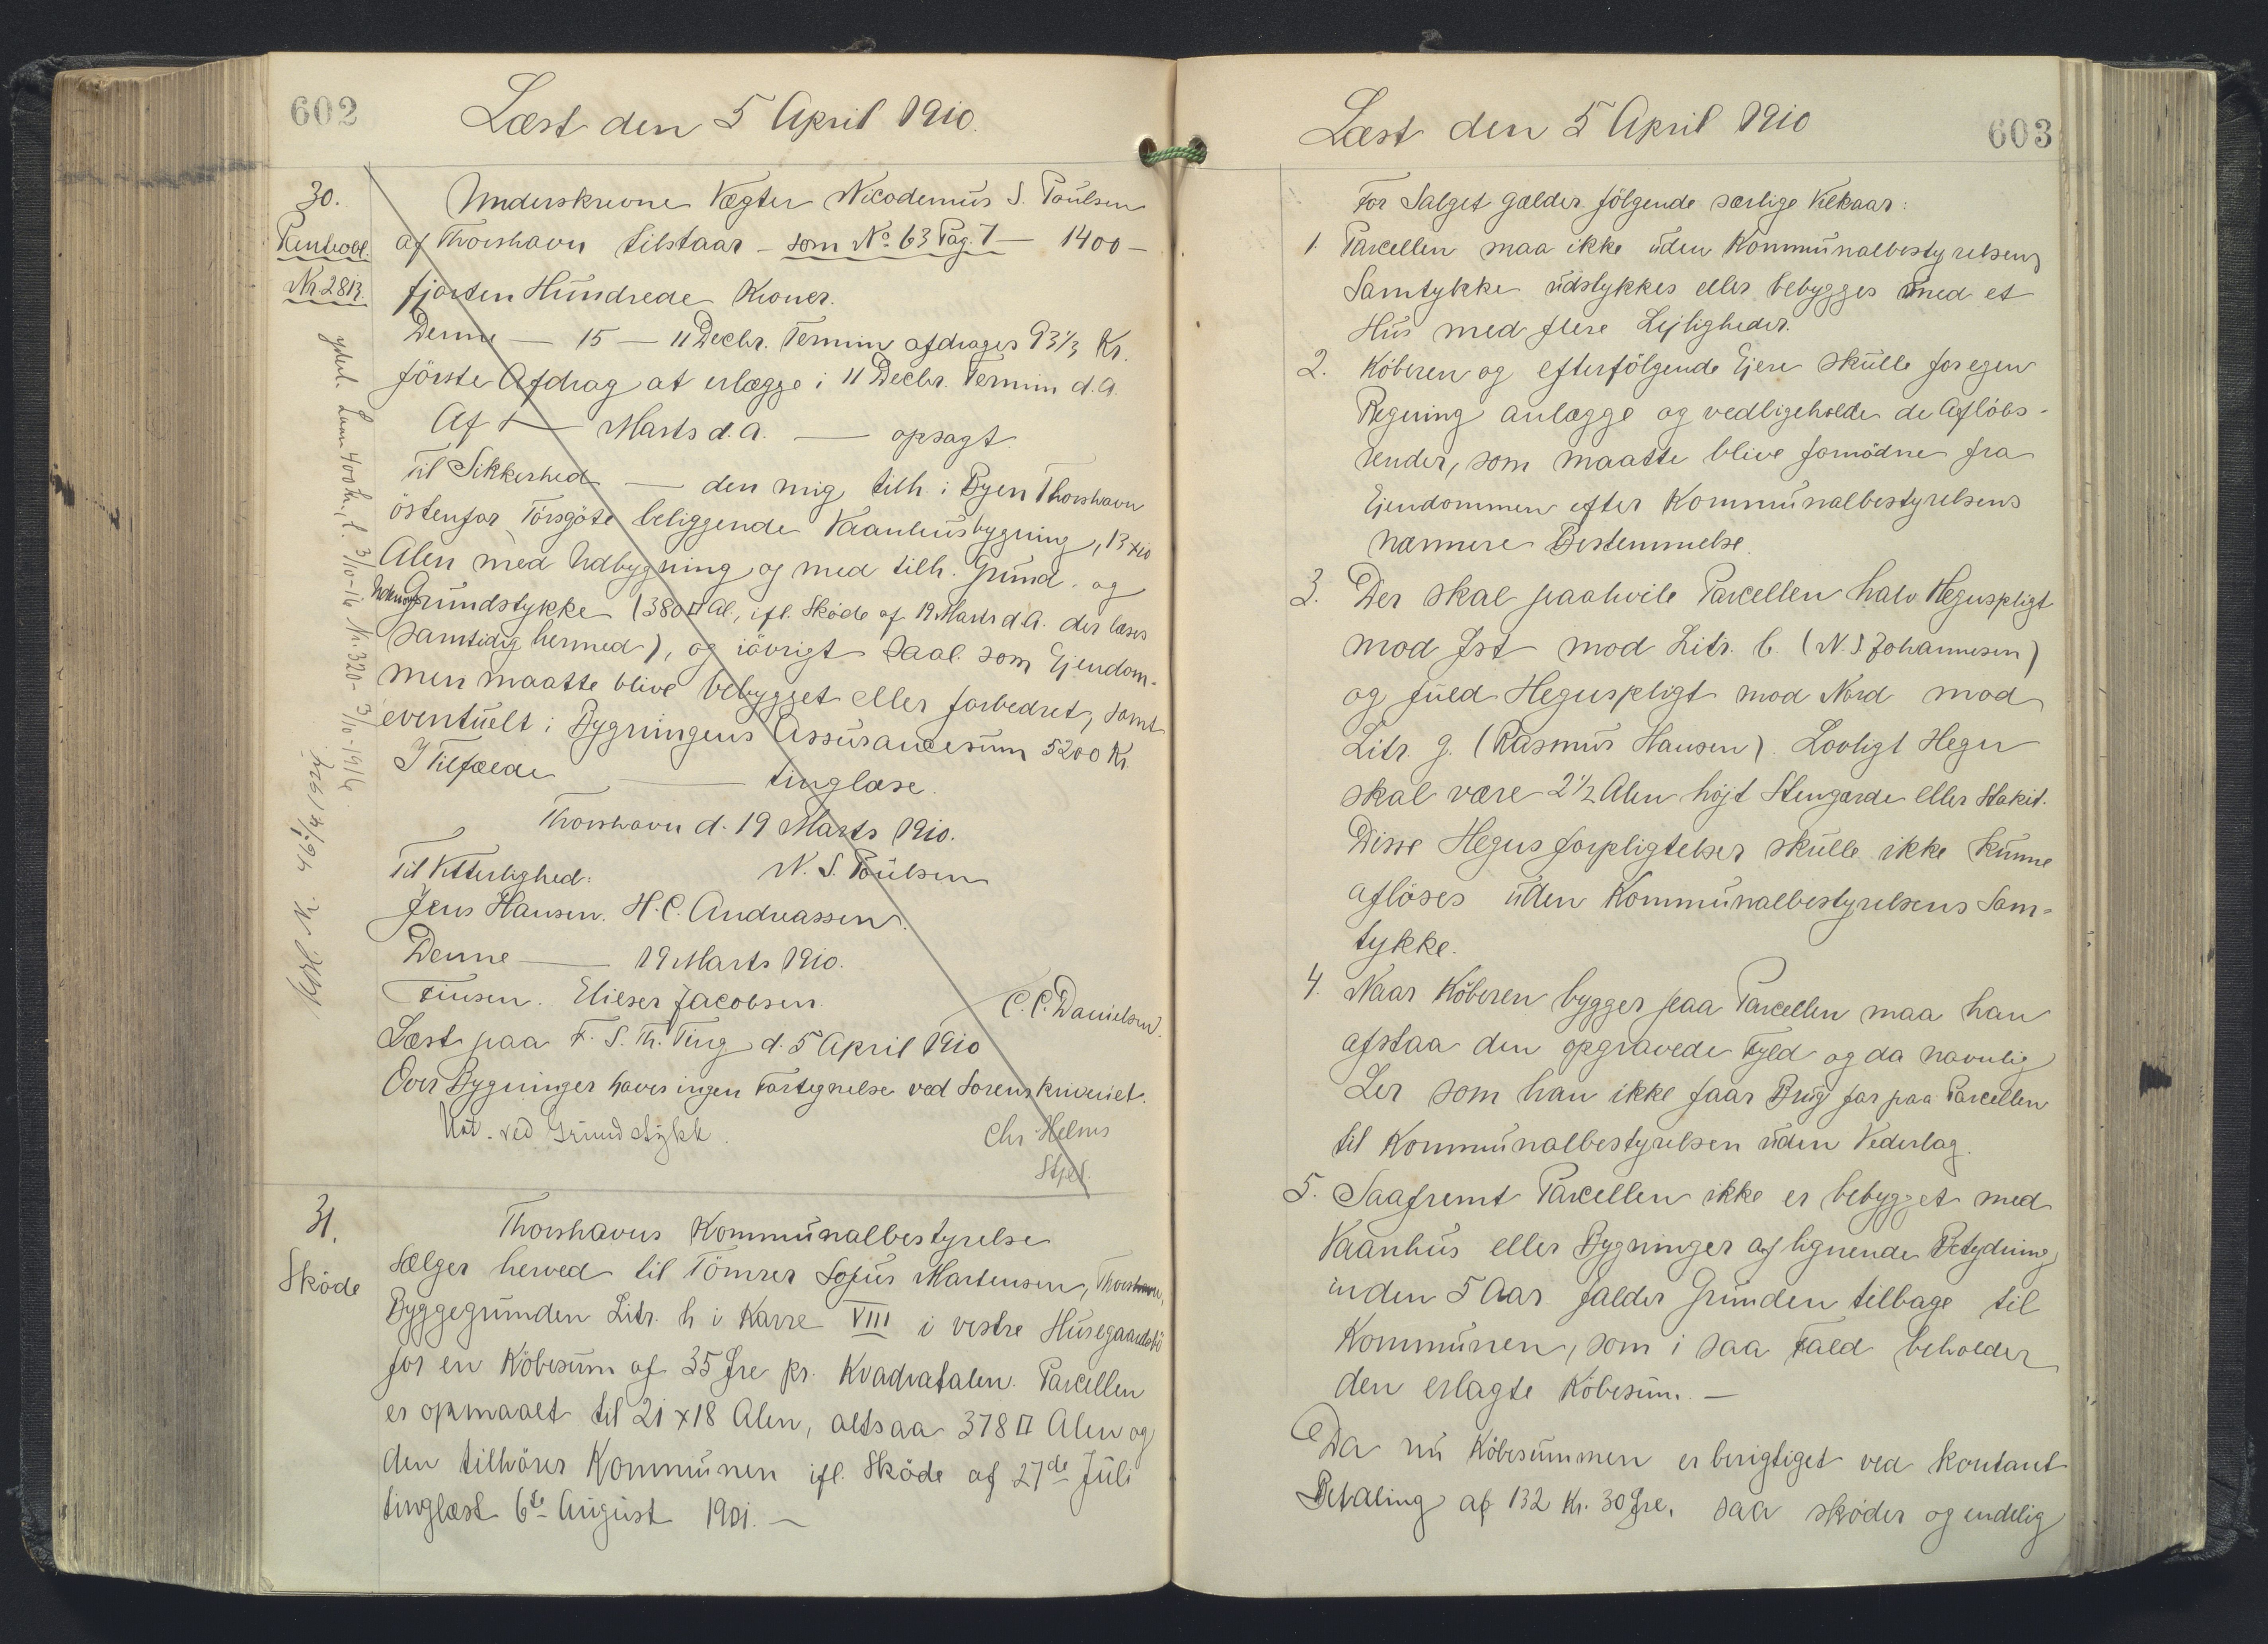 602
Læst den 5 April 1910.
30.
Panteobl.
Nr 2813.
Underskrevne Vægter Nicodemus S. Poulsen
af Thorshavn tilstaar – som No 63 Pag. 7 – 1400 –
fjorten Hundrede Kroner.
Denne — 15 — 11 Decbr. Termin afdrages 93 1/3 Kr.
förste Afdrag at erlægge i 11 Decbr. Termin d.A.
Af — Marts d.A. — opsagt.
Til Sikkerhed — den mig tilh. i Byen Thorshavn
östenfor Törsgöte beliggende Vaanhusbygning, 13 x 10
Alen med Udbygning og med tilh. Grund og
Grundstykke (380 □ Al., ifl. Sköde af 19 Marts d.A. der læses
samtidig hermed), og iövrigt saal. som Ejendom-
men maatte blive bebygget eller forbedret, samt
eventuelt i Bygningens Assurancesum 5200 Kr.
I Tilfælde — tinglæse.
Thorshavn d. 19 Marts 1910.
Til Vitterlighed: N. S. Poulsen
Jens Hansen. H. C. Andreassen.
Denne — 19 Marts 1910.
Finsen. Elieser Jacobsen.
C. C. Danielsen.
Læst paa F. S. Th. Ting d. 5 April 1910
Over Bygninger haves ingen Fortegnelse ved Sorenskriveriet.
Not. ved Grundstykk.
Chr Helms
Stfel.
yderl. Laan 400 Kr., l. 3/10-16 Nr. 320- 3/10-1916.
Kvl. Nr. 46 1/4 1924
31.
Sköde
Thorshavns Kommunalbestyrelse
sælger herved til Tömrer Sofus Martensen, Thorshavn,
Byggegrunden Litr. h i Karre VIII i vestre Husegaardsbö
for en Köbesum af 35 Øre pr. Kvadratalen. Parcellen
er opmaalt til 21 x 18 Alen, altsaa 378 □ Alen og
den tilhörer Kommunen ifl. Sköde af 27de Juli
tinglæst 6te August 1901. —
Læst den 5 April 1910
603
For Salget gælder fölgende særlige Vilkaar:
1. Parcellen maa ikke uden Kommunalbestyrelsens
Samtykke udstykkes eller bebygges med et
Hus med flere Lejligheder.
2. Köberen og efterfölgende Ejere skulle for egen
Regning anlægge og vedligeholde de Aflöbs-
render, som maatte blive fornödne fra
Ejendommen efter Kommunalbestyrelsens
nærmere Bestemmelse.
3. Der skal paahvile Parcellen halv Hegnspligt
mod Øst mod Litr. b. (N. S Johannesen)
og fuld Hegnspligt mod Nord mod
Litr. g. (Rasmus Hansen) Lovligt Hegn
skal være 2 1/2 Alen højt Stengærde eller Stakit.
Disse Hegnsforpligtelser skulle ikke kunne
aflöses uden Kommunalbestyrelsens Sam-
tykke.
4. Naar Köberen bygger paa Parcellen maa han
afstaa den opgravede Fyld og da navnlig
Ler som han ikke faar Brug for paa Parcellen
til Kommunalbestyrelsen uden Vederlag.
5. Saafremt Parcellen ikke er bebygget med
Vaanhus eller Bygninger af lignende Betydning
inden 5 Aar falder Grunden tilbage til
Kommunen, som i saa Fald beholder
den erlagte Köbesum. —
Da nu Köbesummen er berigtiget ved kontant
Betaling af 132 Kr. 30 Øre, saa sköder og endelig